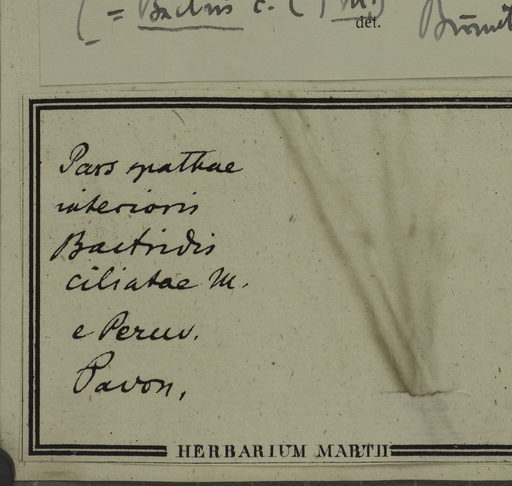 = Bactris c.
det.
Pars spathae
interioris
Bactridis
ciliatae M.
e Peruv.
Pavon.
HERBARIUM MARTII